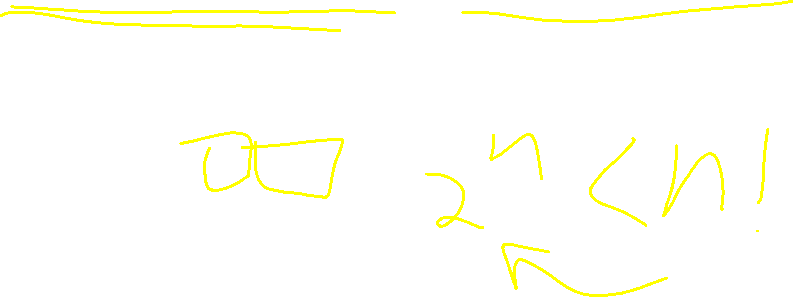 2ⁿ < n!